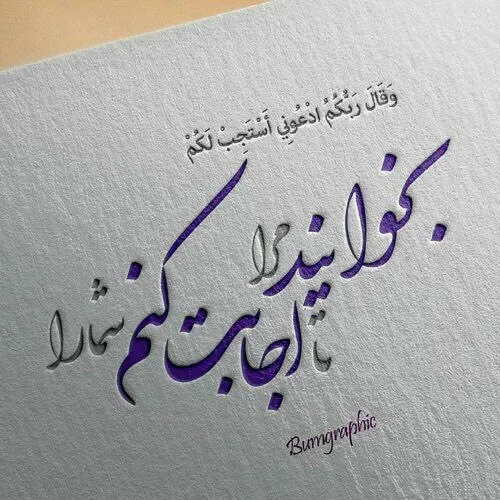 وَقَالَ رَبُّكُمُ ادْعُونِي أَسْتَجِبْ لَكُمْ
بخوانید مرا
تا اجابت کنم شما را
Bumgraphic